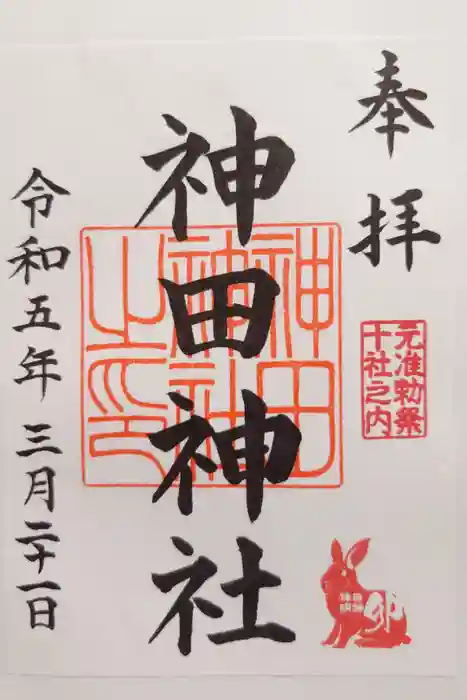 奉拝
元准勅祭
十社之内
卯
神田神社
神田神社之印
令和五年三月二十一日